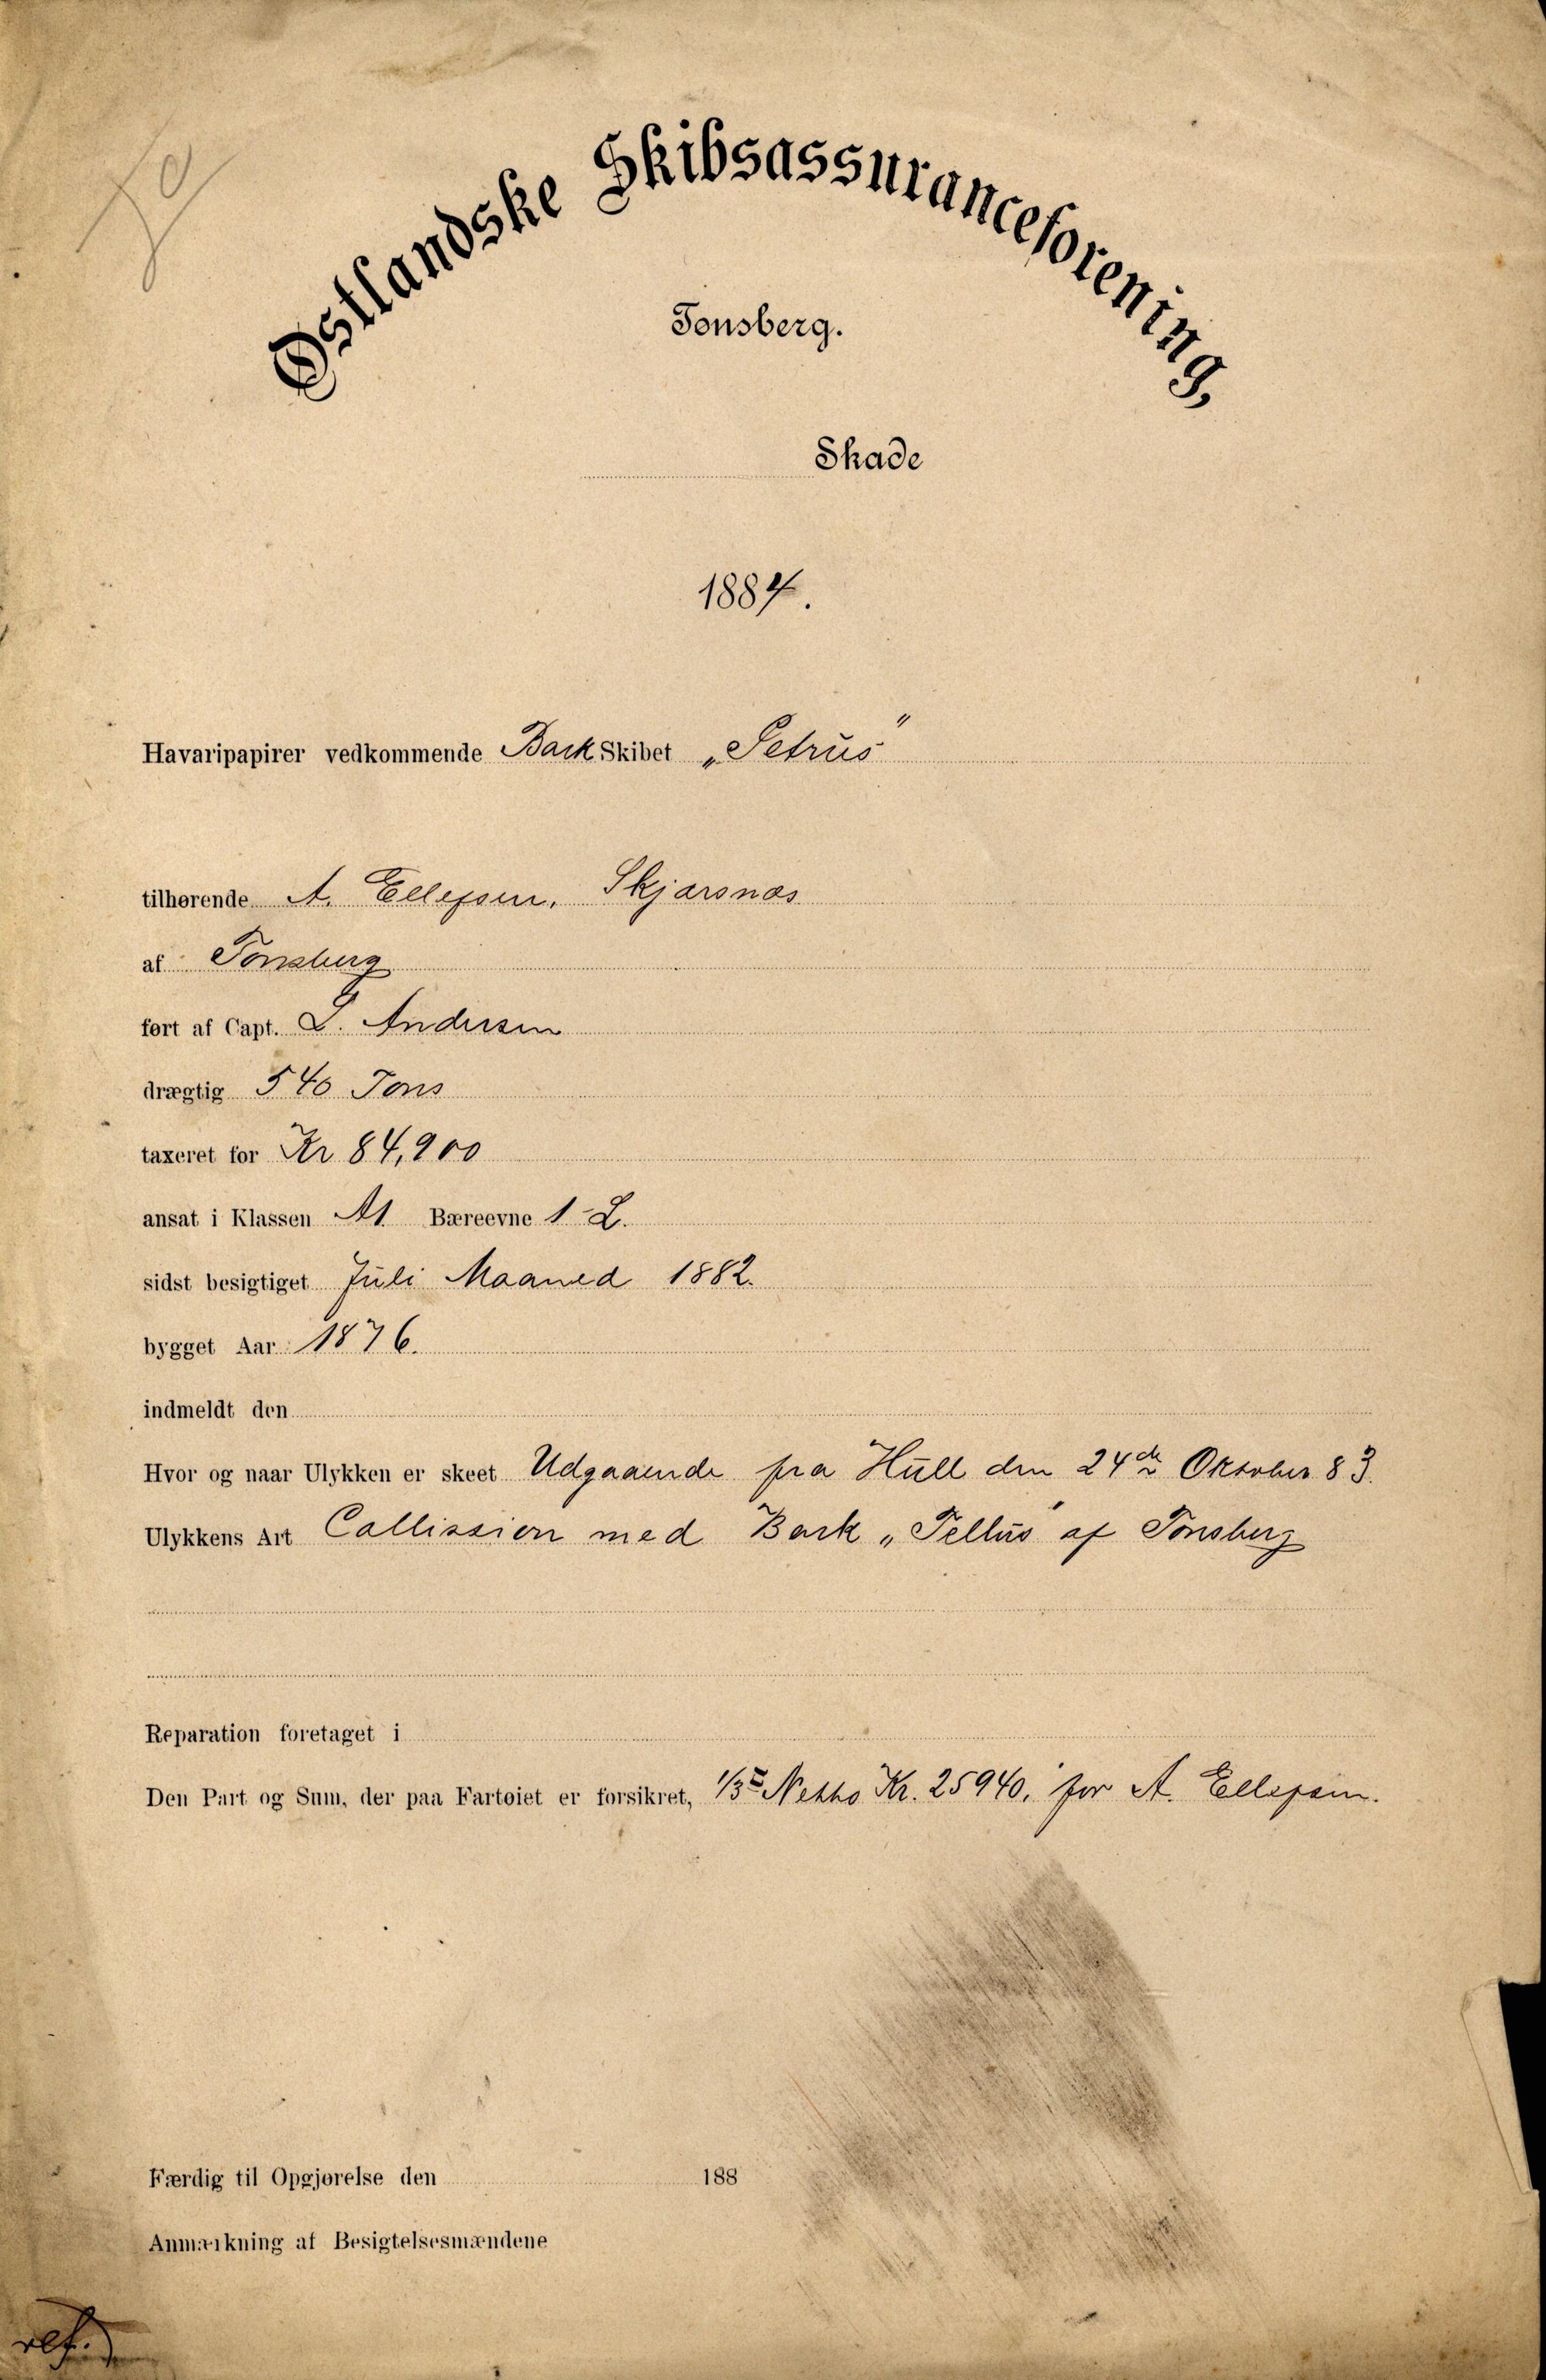 Østlandske Skibsassuranceforening,
Tønsberg.
Skade
1884.
Havaripapirer vedkommende Bark Skibet „Petrus"
tilhørende A. Ellefsen, Skjærsnæs
af Tønsberg
ført af Capt. L. Andersen
drægtig 540 Tons
taxeret for Kr 84,900
ansat i Klassen A1 Bæreevne 1-L.
sidst besigtiget Juli Maaned 1882.
bygget Aar 1876.
indmeldt den
Hvor og naar Ulykken er skeet Udgaaende fra Hull den 24de Oktober 83.
Ulykkens Art Collission med Bark „Tellus" af Tønsberg
Reparation foretaget i
Den Part og Sum, der paa Fartøiet er forsikret, 1/3 Netto Kr. 25940, for A. Ellefsen.
Færdig til Opgjørelse den 188
Anmærkning af Besigtelsesmændene
ref.